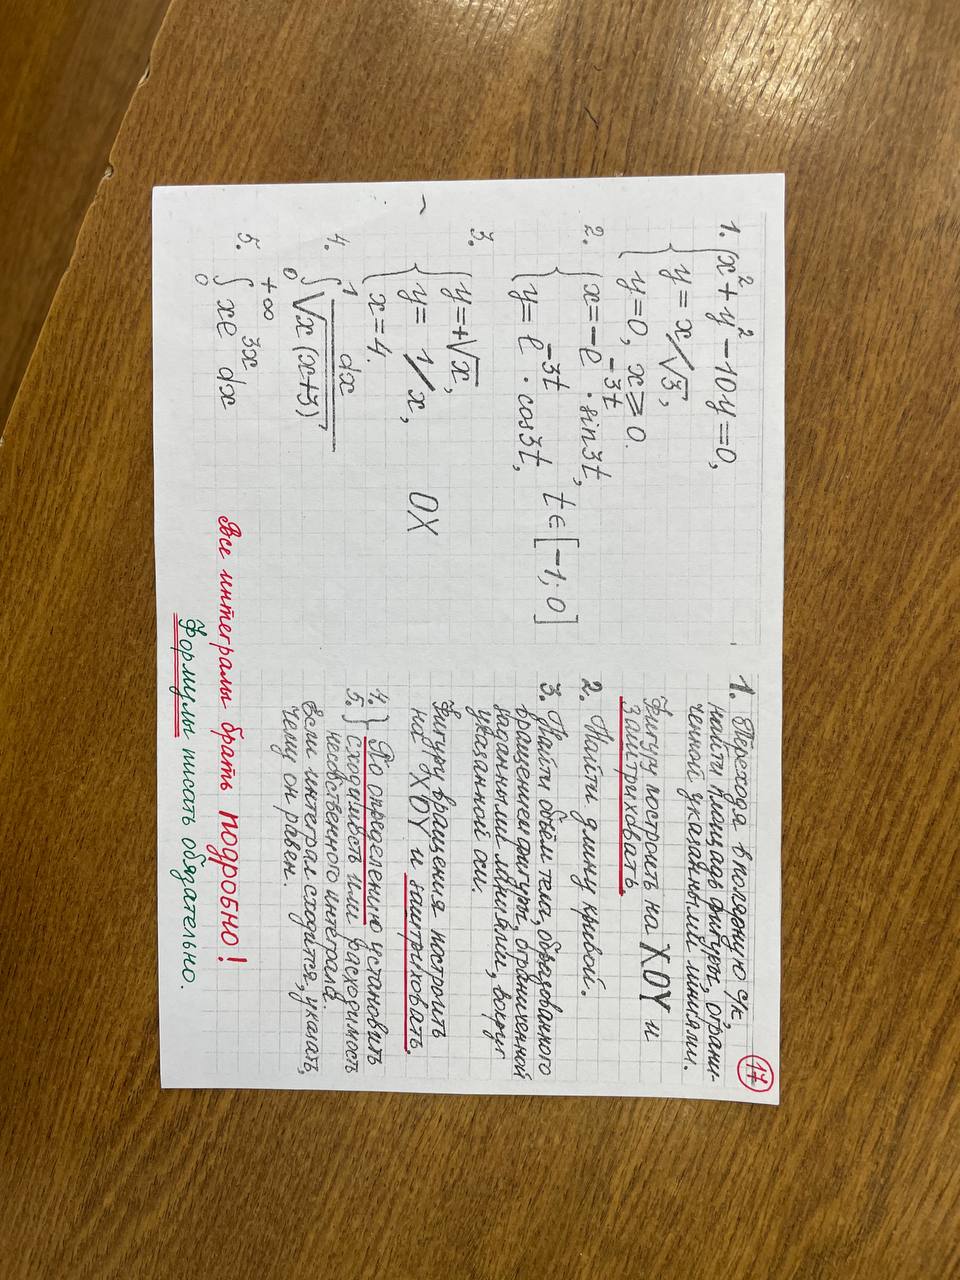 1. { x² + y² - 10y = 0,
y = x/√3,
y = 0, x ⩾ 0.
2. { x = -e^{-3t} · sin3t,
y = e^{-3t} · cos3t,
t ∈ [-1; 0]
3. { y = +√x,
y = 1/x,
x = 4.
OX
4. ∫₀¹ dx / √(x(x+3))
5. ∫₀^{+∞} xe^{3x} dx
17
1. Переходя в полярную с/к,
найти площадь фигуры, ограни-
ченной указанными линиями.
Фигуру построить на XOY и
заштриховать.
2. Найти длину кривой.
3. Найти объём тела, образованного
вращением фигуры, ограниченной
заданными линиями, вокруг
указанной оси.
Фигуру вращения построить
на XOY и заштриховать.
4. } По определению установить
5. } сходимость или расходимость
несобственного интеграла.
Если интеграл сходится, указать,
чему он равен.
Все интегралы брать подробно!
Формулы писать обязательно.